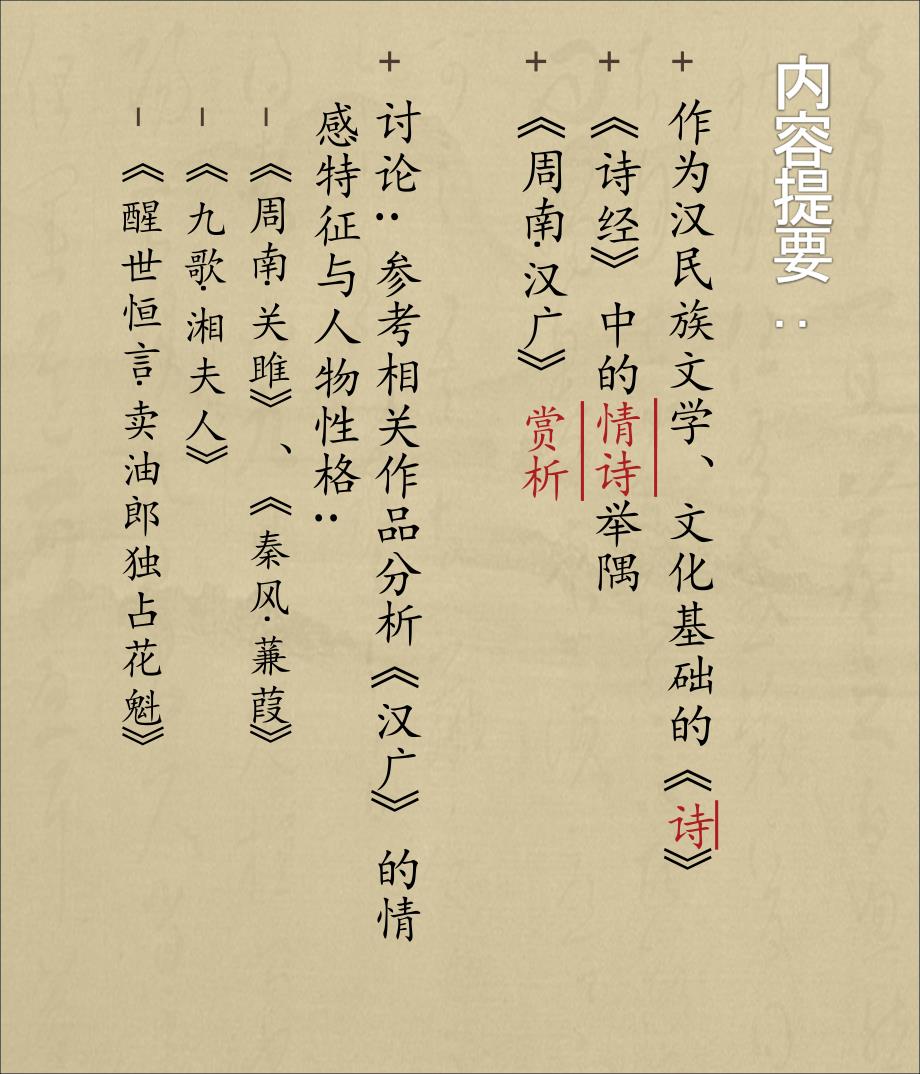 内容提要：
+ 作为汉民族文学、文化基础的《诗》
+ 《诗经》中的情诗举隅
+ 《周南·汉广》赏析
+ 讨论：参考相关作品分析《汉广》的情
感特征与人物性格：
– 《周南·关雎》、《秦风·蒹葭》
– 《九歌·湘夫人》
– 《醒世恒言·卖油郎独占花魁》